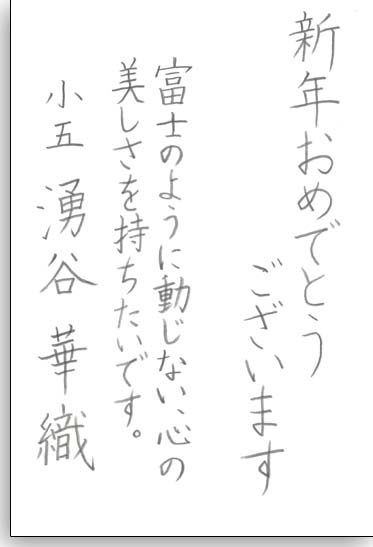 新年おめでとう
ございます
富士のように動じない、心の
美しさを持ちたいです。
小五 湧谷 華織